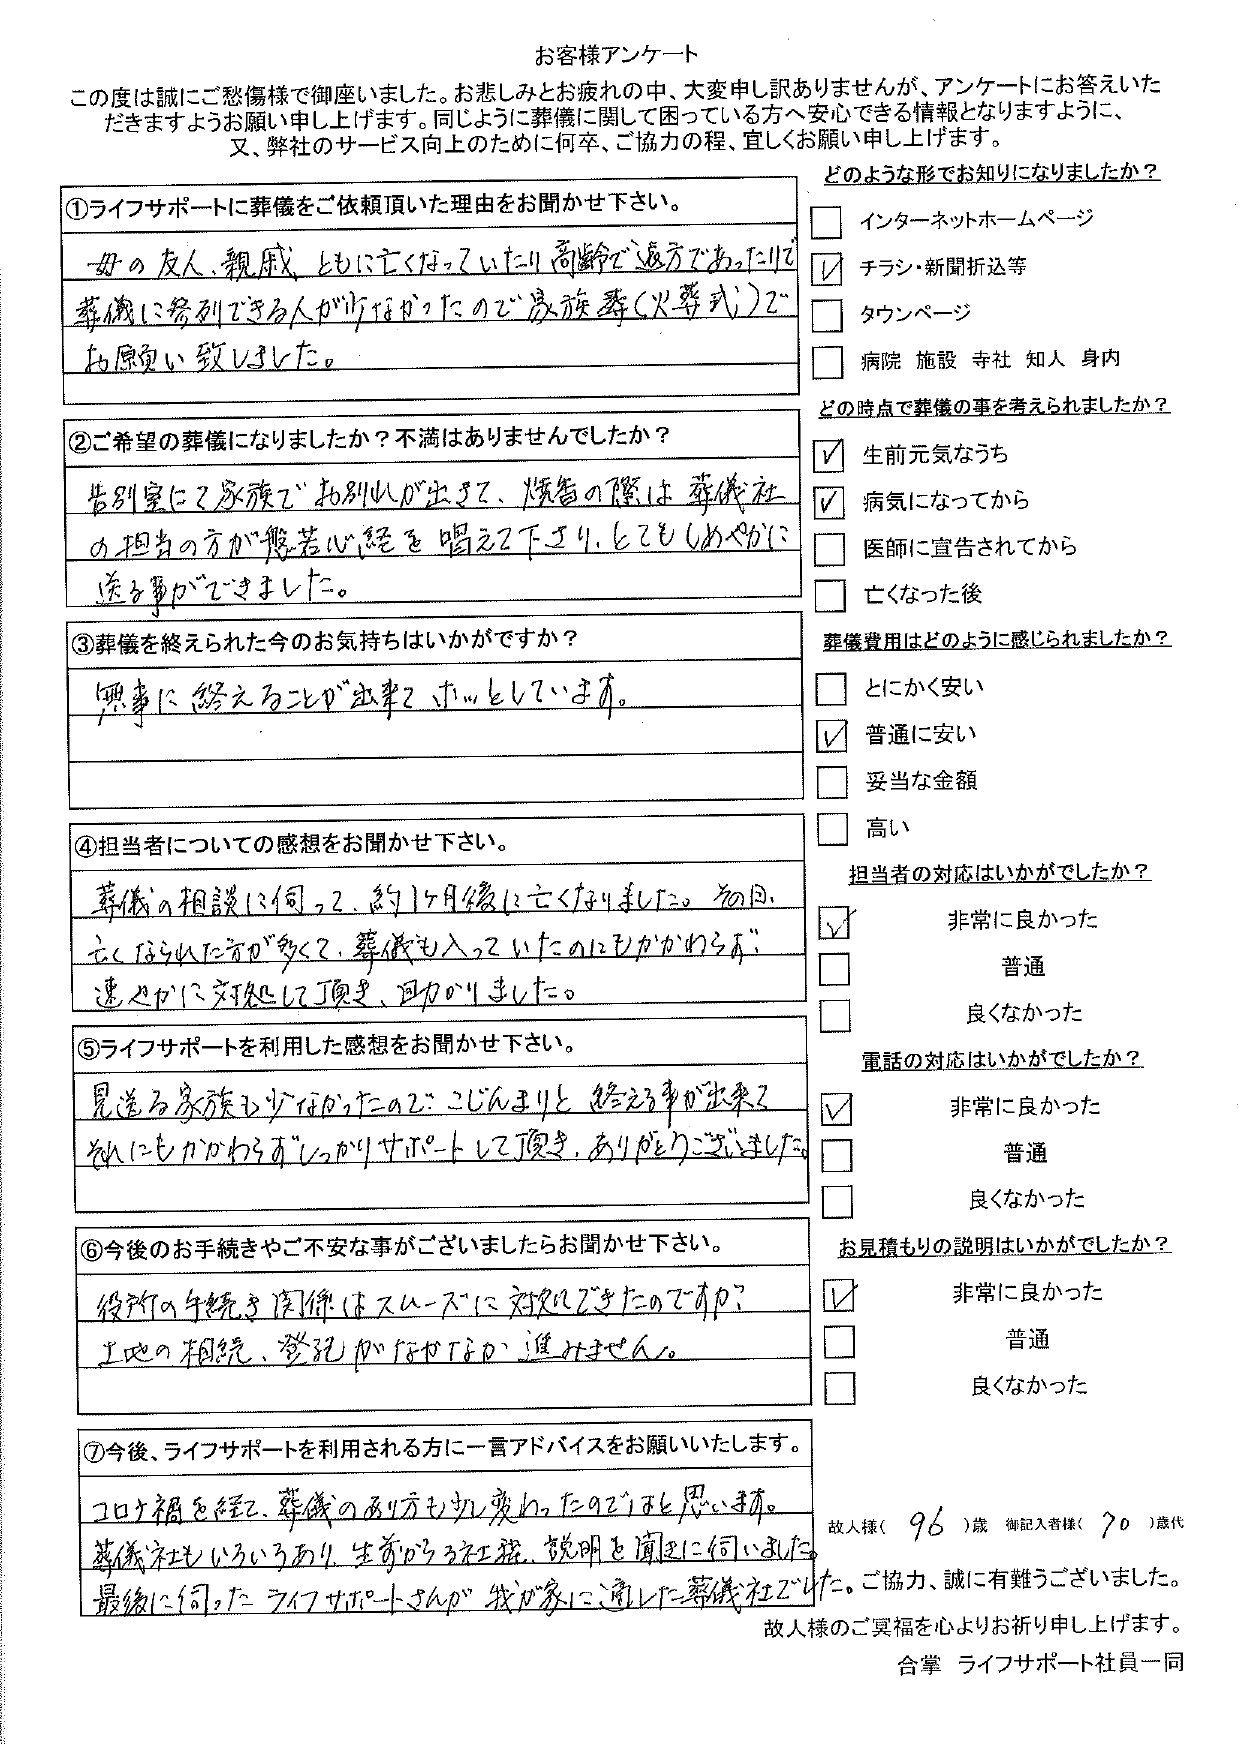 お客様アンケート
この度は誠にご愁傷様で御座いました。お悲しみとお疲れの中、大変申し訳ありませんが、アンケートにお答えいた
だきますようお願い申し上げます。同じように葬儀に関して困っている方へ安心できる情報となりますように、
又、弊社のサービス向上のために何卒、ご協力の程、宜しくお願い申し上げます。
①ライフサポートに葬儀をご依頼頂いた理由をお聞かせ下さい。
母の友人、親戚、ともに亡くなっていたり高齢で遠方であったりで
葬儀に参列できる人が少なかったので家族葬(火葬式)で
お願い致しました。
②ご希望の葬儀になりましたか？不満はありませんでしたか？
告別室にて家族でお別れが出きて、焼香の際は葬儀社
の担当の方が般若心経を唱えて下さり、とてもしめやかに
送る事ができました。
③葬儀を終えられた今のお気持ちはいかがですか？
無事に終えることが出来てホッとしています。
④担当者についての感想をお聞かせ下さい。
葬儀の相談に伺って、約1ケ月後に亡くなりました。その日、
亡くなられた方が多くて、葬儀も入っていたのにもかかわらず
速やかに対処して頂き、助かりました。
⑤ライフサポートを利用した感想をお聞かせ下さい。
見送る家族も少なかったので、こじんまりと終える事が出来て
それにもかかわらずしっかりサポートして頂き、ありがとうございました。
⑥今後のお手続きやご不安な事がございましたらお聞かせ下さい。
役所の手続き関係はスムーズに対処できたのですが、
土地の相続、登記がなかなか進みません。
⑦今後、ライフサポートを利用される方に一言アドバイスをお願いいたします。
コロナ禍を経て、葬儀のあり方も少し変わったのではと思います。
葬儀社もいろいろあり、生前から3社程、説明を聞きに伺いました。
最後に伺ったライフサポートさんが我が家に適した葬儀社でした。
どのような形でお知りになりましたか？
インターネットホームページ
✓ チラシ・新聞折込等
タウンページ
病院 施設 寺社 知人 身内
どの時点で葬儀の事を考えられましたか？
✓ 生前元気なうち
✓ 病気になってから
医師に宣告されてから
亡くなった後
葬儀費用はどのように感じられましたか？
とにかく安い
✓ 普通に安い
妥当な金額
高い
担当者の対応はいかがでしたか？
✓ 非常に良かった
普通
良くなかった
電話の対応はいかがでしたか？
✓ 非常に良かった
普通
良くなかった
お見積もりの説明はいかがでしたか？
✓ 非常に良かった
普通
良くなかった
故人様( 96 )歳 御記入者様( 70 )歳代
ご協力、誠に有難うございました。
故人様のご冥福を心よりお祈り申し上げます。
合掌 ライフサポート社員一同